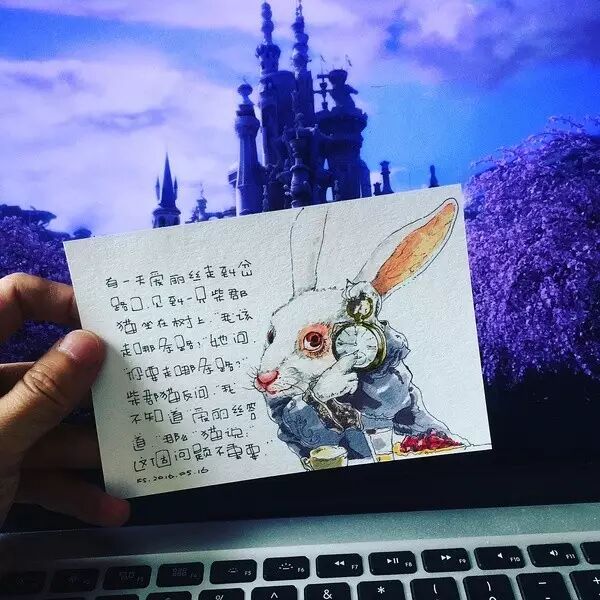 有一天爱丽丝走到岔
路口,见到一只柴郡
猫坐在树上."我该
走哪条路?"她问
"你要走哪条路?"
柴郡猫反问."我
不知道"爱丽丝答
道."那么"猫说:"
这个问题不重要."
FS.2016.05.16
F3
F4
F5
F6
F7
F8
F9
F10
F11
#
$
%
^
&
*
(